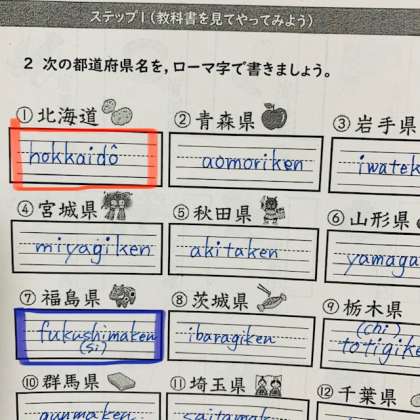 ステップ1（教科書を見てやってみよう）
2 次の都道府県名を，ローマ字で書きましょう。
① 北海道
② 青森県
③ 岩手県
hokkaidô
aomoriken
iwatek
④ 宮城県
⑤ 秋田県
⑥ 山形県
miyagiken
akitaken
yamaga
⑦ 福島県
⑧ 茨城県
⑨ 栃木県
fukushimaken
(si)
ibaragiken
(chi)
totigike
⑩ 群馬県
⑪ 埼玉県
⑫ 千葉県
gunmaken
saitamak